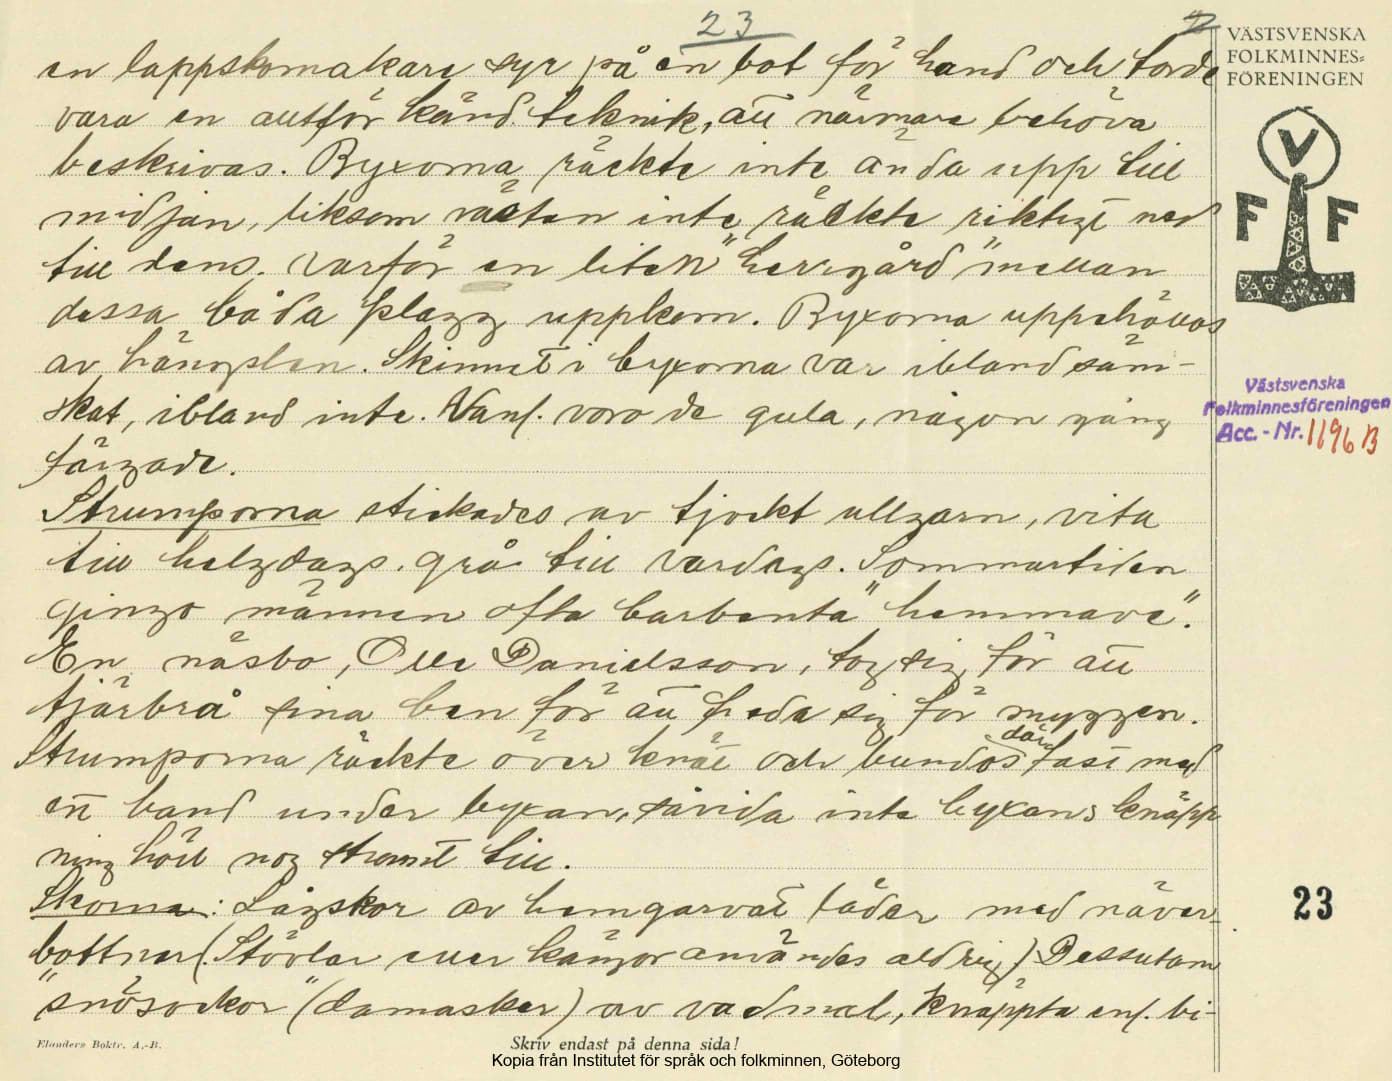 23
VÄSTSVENSKA
FOLKMINNES=
FÖRENINGEN
V
F F
en lappskomakare syr på en bot för hand och torde
vara en alltför känd teknik, att närmare behöva
beskrivas. Byxorna räckte inte ända upp till
midjan, liksom västen inte räckte riktigt ned
till dens. varför en liten "herrgård" mellan
dessa båda plagg uppkom. Byxorna uppehöllos
av hängslen. Skinnet i byxorna var ibland säm-
skat, ibland inte. Vanl. voro de gula, någon gång
färgade.
Strumporna stickades av tjockt ullgarn, vita
till helgdags. grå till vardags. Sommartiden
gingo männen ofta barbenta "hemmave".
En näsbo, Olle Danielsson, tog sig för att
tjärbrå sina ben för att freda sig för myggen.
Strumporna räckte över knät och bundos där fast med
ett band under byxan, såvida inte byxans knäpp
ning höll nog stramt till.
Skorna: Lågskor av hemgarvat läder med näver-
bottnar (Stövlar eller kängor användes aldrig) Dessutom
"snösockor" (damasker) av vadmal, knäppta enl. bi-
Västsvenska
Folkminnesföreningen
Acc. - Nr. 1196 B
23
Elanders Boktr. A.-B.
Skriv endast på denna sida!
Kopia från Institutet för språk och folkminnen, Göteborg